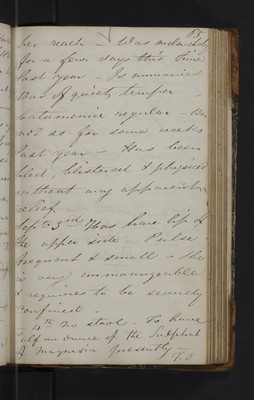 her reach – Was melancholy
for a few days this time
last year – Is
was of quiet temper
Catamenia regular – Was
not so for some weeks
last year – Has been
bled, blistered & physic'd
without any apparent
relief –
Sept. 3rd Has hare lip of
the upper side – Pulse
frequent & small – She
is very unmanageable
& requires to be securely
confined –
4th No stool – To have
half an ounce of the Sulphat
of Magnesia presently –
T. O